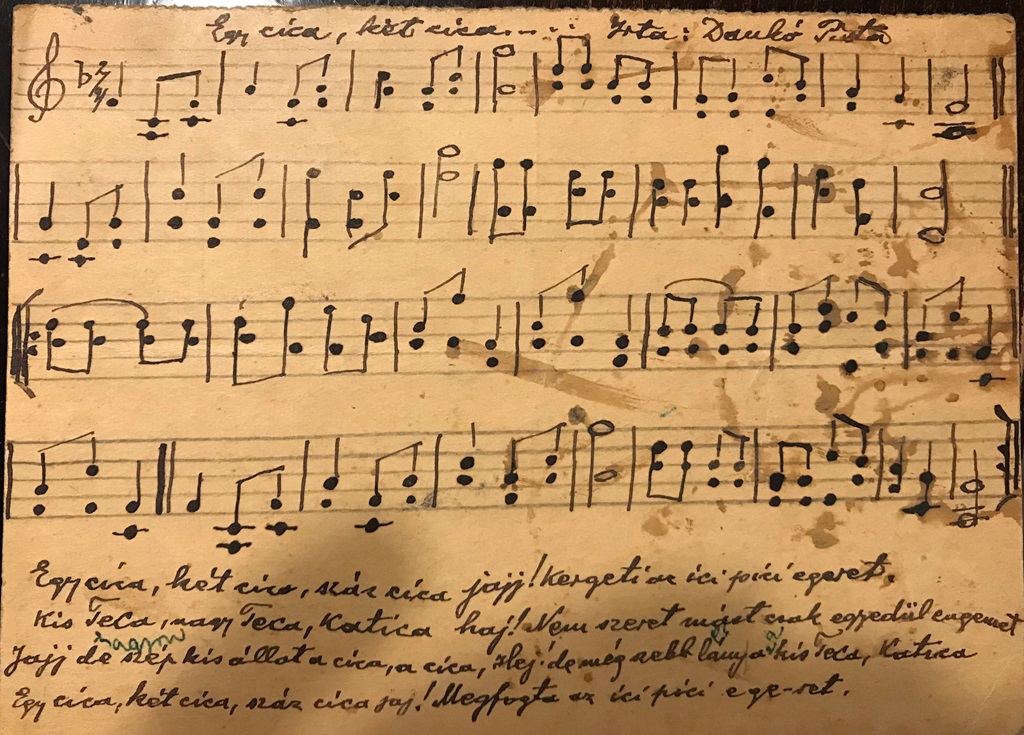 Egy cica, két cica..... Irta: Dankó Pista
2/4
Egy cica, két cica, száz cica jajj! Kergeti az ici pici egeret.
Kis Teca, nagy Teca, Katica haj! Nem szeret mást csak egyedül engemet
nagyon
Jajj de szép kis állat a cica, a cica, Hej! de még szebb lány a kis Teca, Katica
Egy cica, két cica, száz cica jaj! Megfogta az ici pici ege-ret.